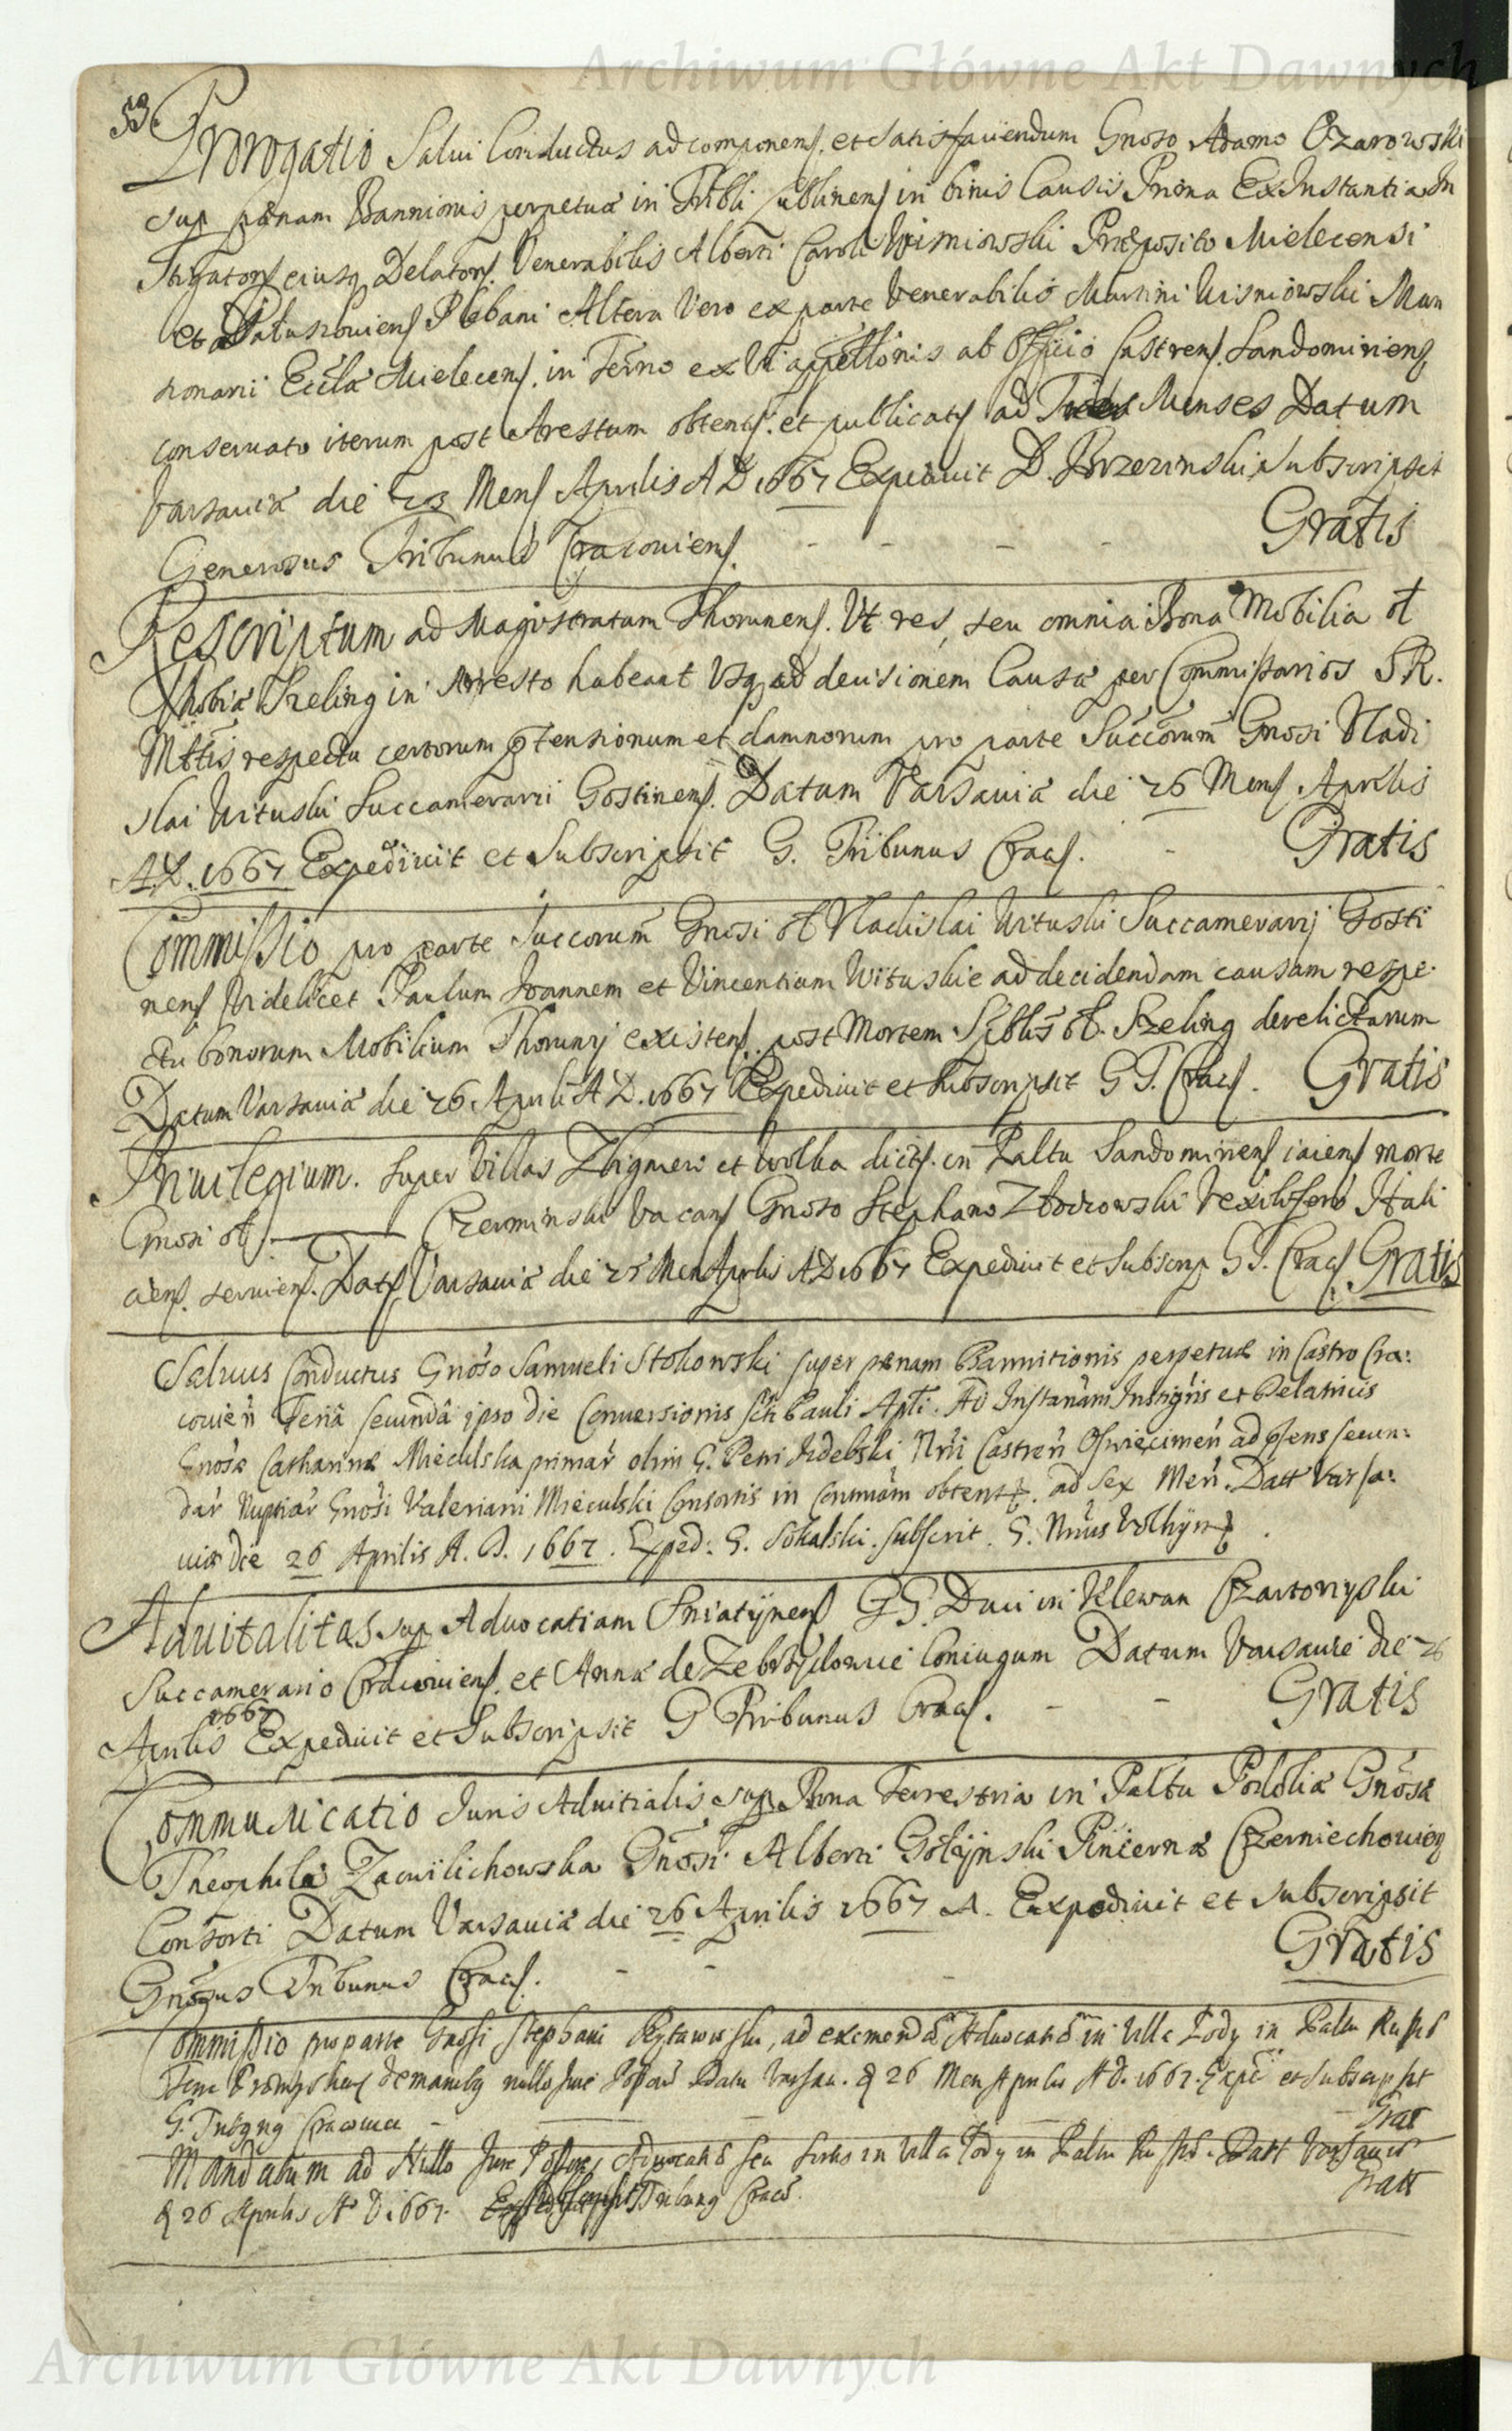 Archiwum Główne Akt Dawnych
53
Prorogatio Salui Conductus ad componens. et satisfaciendum Gnoso Adamo Ozarowski
sup pænam Bannionis perpetuæ in Tribli Lublinens in binis Causis Prima Ex Instantia In
stigatoris eiusq Delatoris Venerabilis Alberti Caroli Wisniowski Præposito Mielecensi
et Plebani Altera Vero ex parte Venerabilis Martini Wisniowski Man
sionarii Eccla Mielecens. in Termo ex Vi appellonis ab Officio Castrens. Sandomiriens
conseruato iterum post Arestum obtents. et publicats ad Tres Menses Datum
Varsauiæ die 23 Mens Aprilis A D 1667 Expediuit D. Brzezinski Subscripsit
Generosus Tribunus Cracouiens. - - - - Gratis
Rescriptum ad Magistratum Thorunens. Ut res, seu omnia Bona Mobilia ol
Thobiæ Szeling in Arresto habeant Usq ad decisionem Causæ per Commissarios S R.
Mttis respectu certorum prtensionum et damnorum pro parte Succorum Gnosi Vladi
slai Wituski Succamerarii Gostinens. Datum Varsauiæ die 26 Mens. Aprilis
A.D. 1667 Expediuit et Subscripsit G. Tribunus Cracs. - Gratis
Commissio pro parte Succorum Gnosi ol Vladislai Wituski Succamerarij Gosti
nens Videlicet Paulum Joannem et Vincentium Wituskie ad decidendam causam respe
ctu bonorum Mobilium Thorunij existens. post Mortem ol. Szeling derelictarum
Datum Varsauiæ die 26 Aprilis A D. 1667 Expediuit et Subscripsit G T. Cracs. Gratis
Priuilegium. super Villas Zbigniew et Wolka dicts. in Paltu Sandomiriens iacens morte
Gnosi ol Czerminski Vacans Gnoso Stephano Vexilifero Hali
ciens. seruiens. Dats Varsauiæ die 25 Mens Aprlis A D 1667 Expediuit et Subscrip G T. Cracs Gratis
Saluus Conductus Gnoso Samueli Stokowski super pænam Bannitionis perpetuæ in Castro Cra:
couien Feria secunda ipso die Conuersionis Sti Pauli Apli. Ad Instanam Instigris et Delatricis
Gnosæ Catharinæ Mieculska primar olim G. Petri Nrii Castren Oswiecimen ad psens secun:
dar Nuptiar Gnosi Valeriani Mieculski Consortis in Contuam obtent. ad sex Men. Datt Varsa:
uiæ die 26 Aprilis A. D. 1667. Exped: G. Sokalski. subscrit. G. Nrius Volhyn.
Aduitalitas sup Aduocatiam Sniatynens G G. Duci in Klewan Czartoryski
Succamerario Cracouiens. et Annæ de Zebrzydowice Coniugum Datum Varsauie die 26
Aprilis 1667 Expediuit et Subscripsit G Tribunus Cracs. - - Gratis
Communicatio Juris Aduitialis sup Bona Terrestria in Paltu Podoliæ Gnosæ
Theophilæ Zacwilichowska Gnosi Alberti Golynski Pincernæ Czerniechouien
Consorti Datum Varsauiæ die 26 Aprilis 1667 A. Expediuit et subscripsit
Gnosus Tribunus Cracs. - - - Gratis
Commissio pro parte Gnosi Stephani ad eximend Aduocatiæ in Villa Zody in Paltu Russ
Terra nullo Jure Datu Varsau. d 26 Mens Aprilis A D. 1667. Expe et Subscripsit
G. Cracouien - - Grat
Mandatum ad Nullo Jure Aduocatiæ seu in Villa Zody in Paltu Russ. Datt Varsauiæ
d 26 Aprilis A D 1667. Tribung Craco. Gratt
Archiwum Główne Akt Dawnych